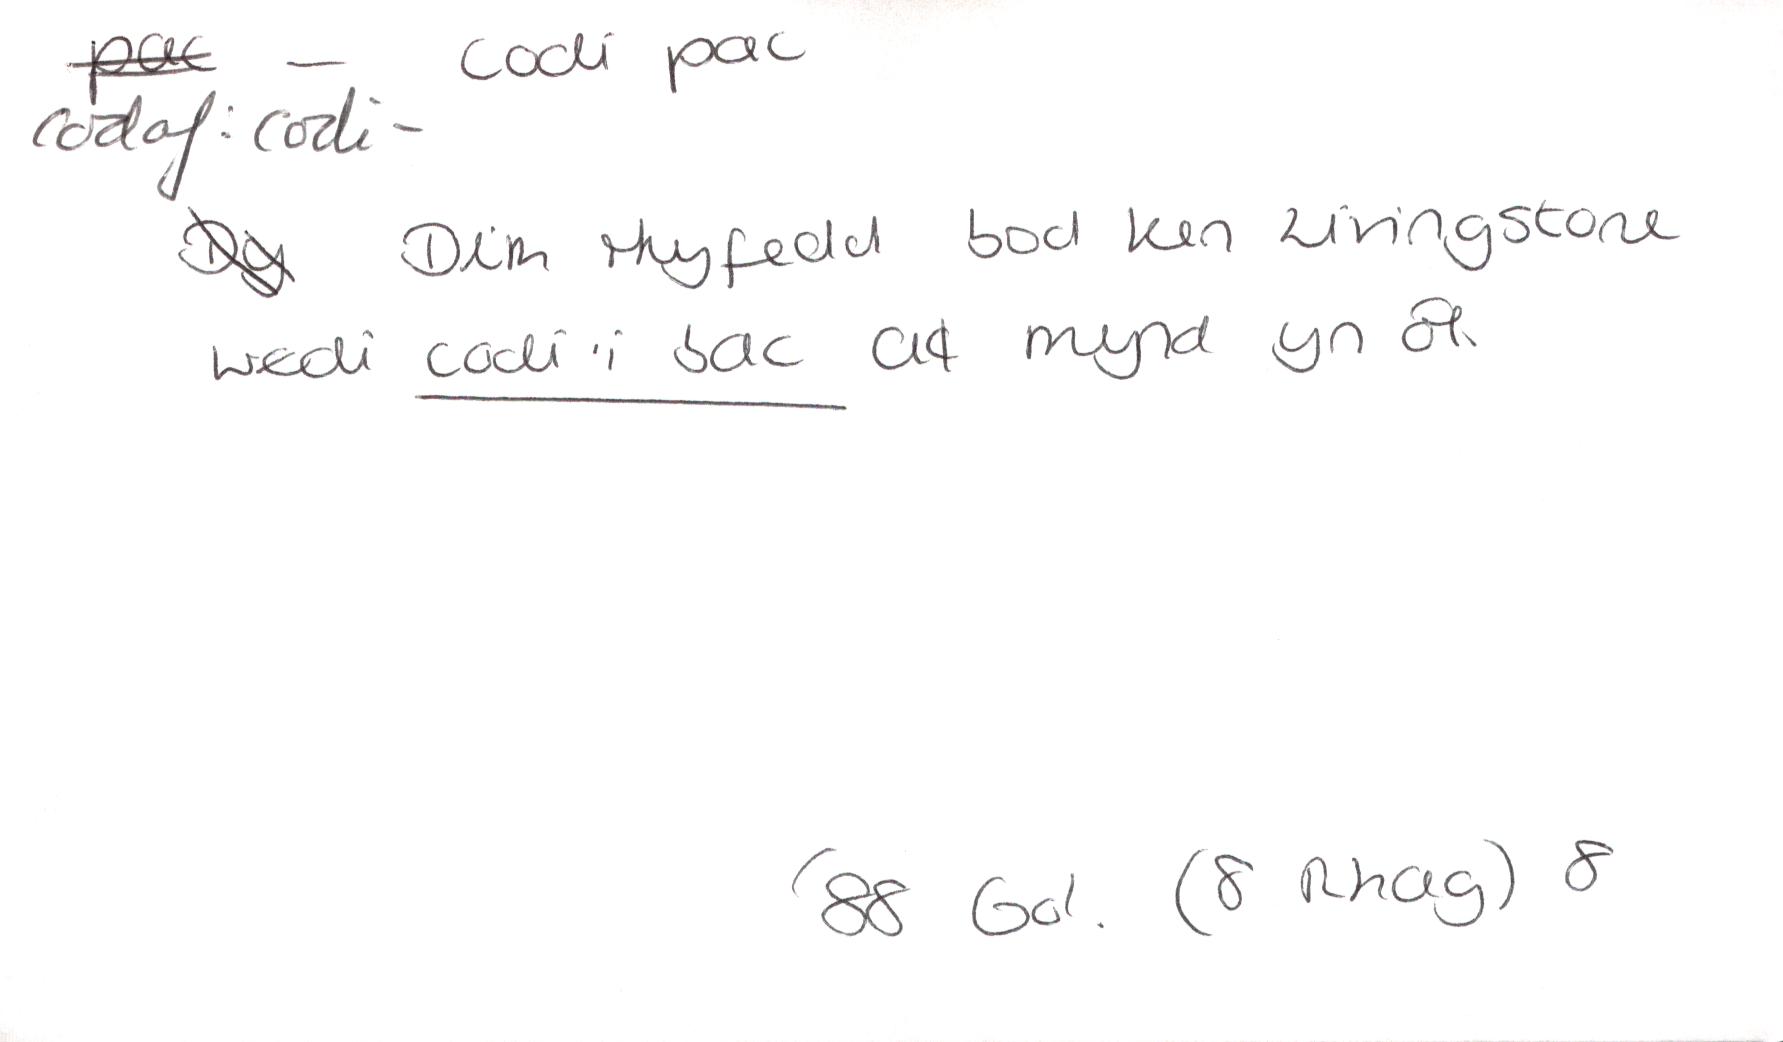 pac – codi pac
codaf: codi -
Dy Dim rhyfedd bod Ken Livingstone
wedi codi'i bac a mynd yn ôl.
'88 Gol. (8 Rhag) 8